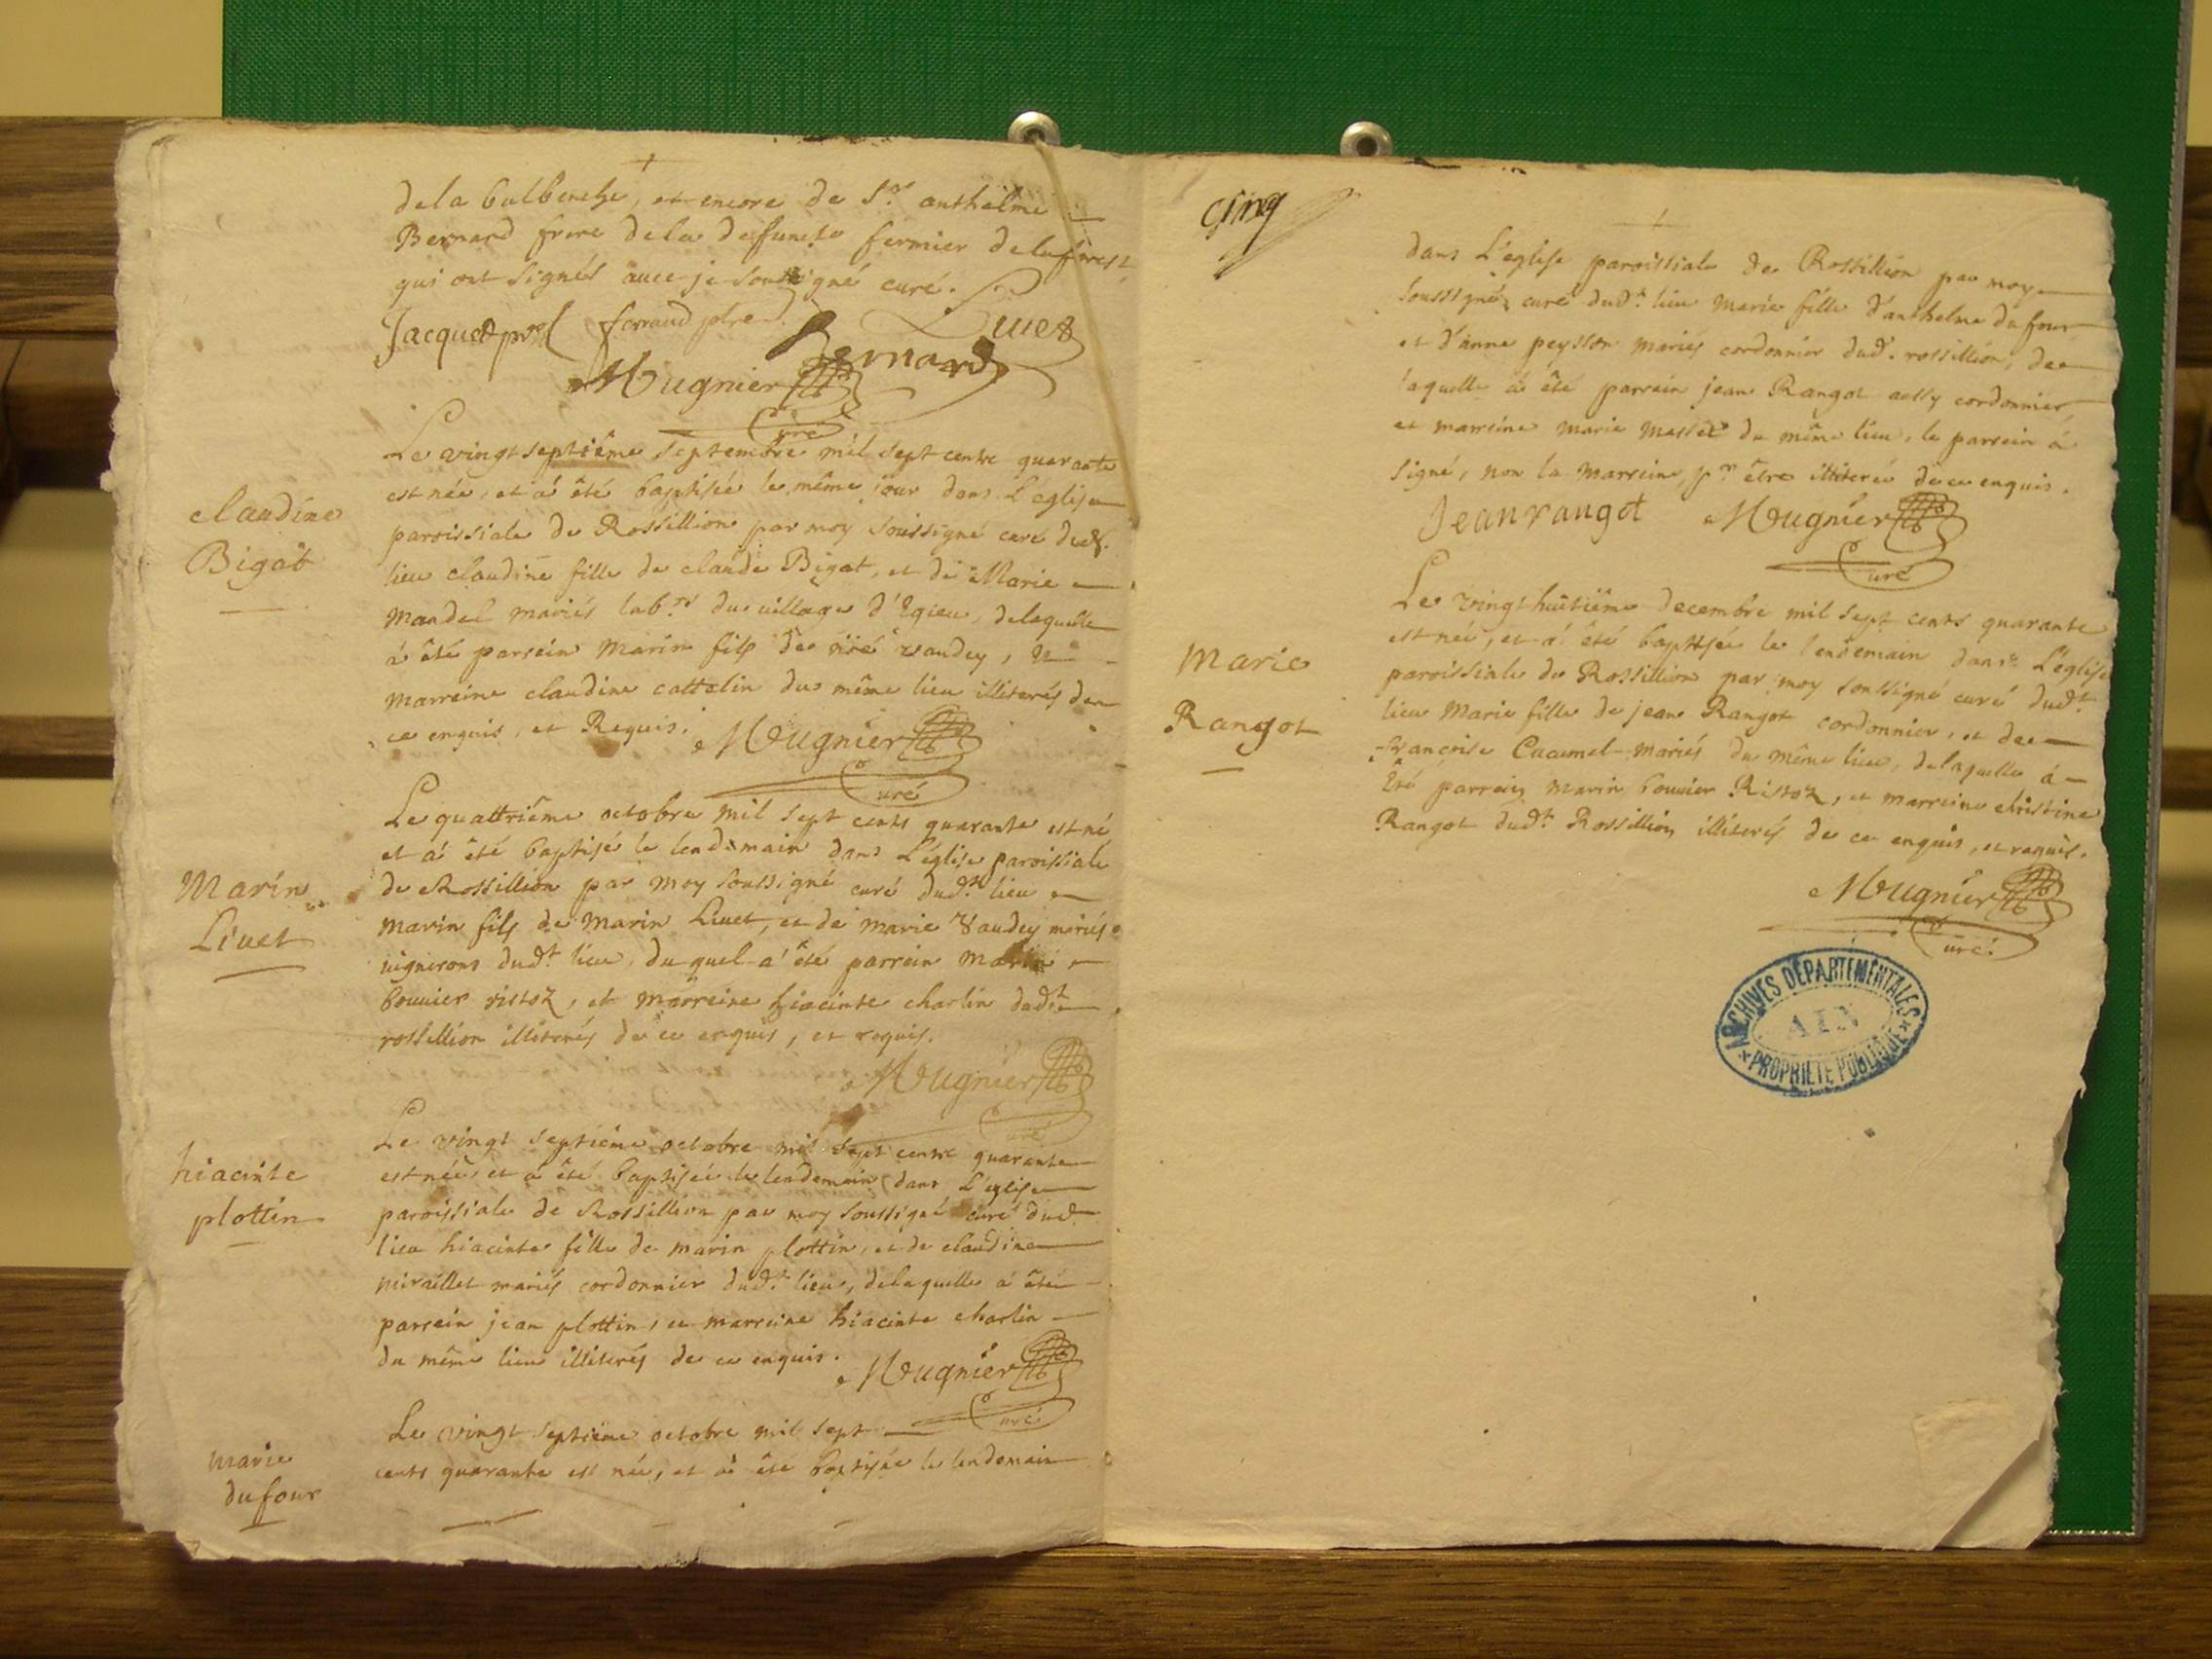 de la balbenche, et encore de Sr. anthelme
Bernard frere de la defuncte fermier de laforest
qui ont signés avec je soussigné curé.
Jacquet ferraud ptre Livet
Bernard
Mugnier
Curé
claudine
Bigot
Le vingt septiême septembre mil sept cents quarante
est née, et à êté baptisée le même jour dans L'eglise
paroissiale de Rossillion par moy soussigné curé dud.
lieu claudine fille de claude Bigot, et de Marie
Mandel mariés labrs du village d'Egieu, delaquelle
à êté parrein Marin fils de vaudey, et
marreine claudine cattelin du même lieu illiterés de
ce enquis, et Requis. Mugnier
Curé
Marin
Livet
Le quattriême octobre mil sept cents quarante est né
et a êté baptisé le lendemain dans L'église paroissiale
de Rossillion par moy soussigné curé dudt. lieu
Marin fils de Marin Livet, et de marie Vaudey mariés
vignerons dudt. lieu, duquel a êté parrein Marin
bouvier ristoz, et marreine hiacinte charlin dudt
rossillion illiterés de ce enquis, et requis.
Mugnier
Curé
hiacinte
plottin
Le vingt septiême octobre mil sept cents quarante
est née, et à êté baptisée le lendemain dans L'eglise
paroissiale de Rossillion par moy soussigné curé dud
lieu hiacinte fille de marin plottin, et de claudine
miraillet mariés cordonnier dudt. lieu, delaquelle à êté
parrein jean plottin, et marreine hiacinte charlin
du même lieu illiterés de ce enquis. Mugnier
Curé
marie
dufour
Le vingt septiême octobre mil sept
cents quarante est née, et à êté baptisée le lendemain
cinq
dans L'église paroissiale de Rossillion par moy
soussigné curé dudt. lieu Marie fille d'anthelme dufour
et d'anne peysson mariés cordonnier dud. rossillion, de
laquelle à êté parrein jean Rangot cordonnier
et marreine marie du même lieu, le parrein à
signé, non la marreine, pr être illiterée de ce enquis.
Jean rangot Mugnier
Curé
Marie
Rangot
Le vingt huitiême decembre mil sept cents quarante
est née, et à êté baptisée le lendemain dans L'église
paroissiale de Rossillion par moy soussigné curé dudt.
lieu Marie fille de jean Rangot cordonnier, et de
françoise mariés du même lieu, delaquelle à
êté parrein marin bouvier Ristoz, et marreine christine
Rangot dudt. Rossillion illiterés de ce enquis, et requis.
Mugnier
Curé
ARCHIVES DÉPARTEMENTALES
AIN
PROPRIÉTÉ PUBLIQUE